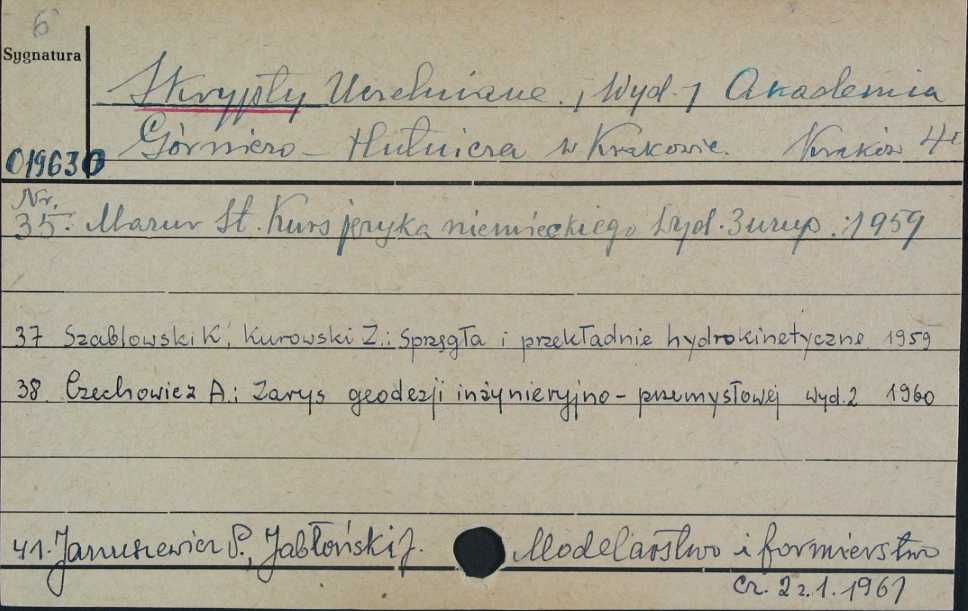 6
Sygnatura
Skrypty Uczelniane. , Wyd. , Akademia
Górniczo – Hutnicza w Krakowie. Kraków 4º
019630
Nr.
35. Mazur St. Kurs języka niemieckiego Wyd. 3 uzup. 1959
37 Szabłowski K, Kurowski Z.: Sprzęgła i przekładnie hydrokinetyczne 1959
38. Czechowicz A.: Zarys geodezji inżynieryjno – przemysłowej wyd. 2 1960
41. Januszewicz P., Jabłoński J. Modelarstwo i formierstwo
cz. 2 z. 1. 1961